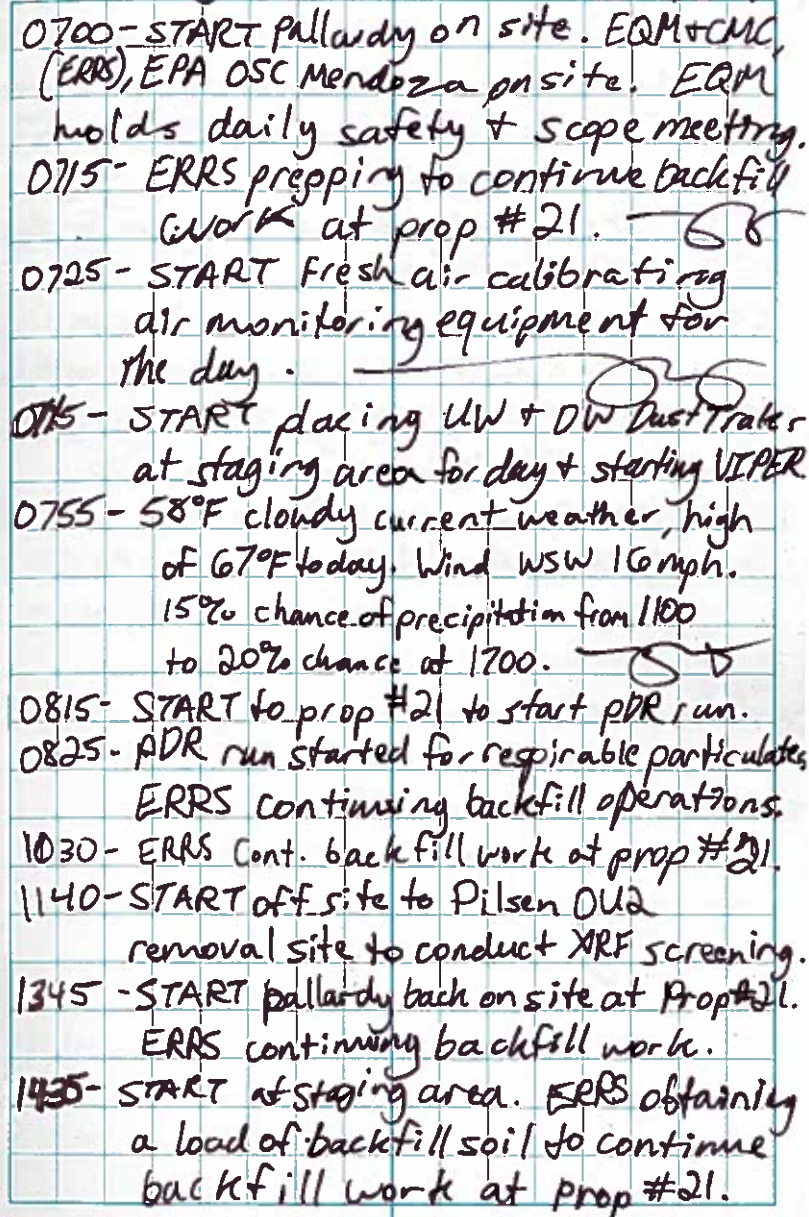 0700- START Pallardy on site. EQM+CMC,
(ERRS), EPA OSC Mendoza onsite. EQM
holds daily safety + scope meeting.
0715- ERRS prepping to continue backfill
work at prop #21.
0725- START Fresh air calibrating
air monitoring equipment for
the day.
START placing UW + DW DustTraker
at staging area for day + starting VIPER
0755- 58°F cloudy current weather, high
of 67°F today. Wind WSW 16mph.
15% chance of precipitation from 1100
to 20% chance at 1700.
0815- START to prop #21 to start pDR run.
0825- pDR run started for respirable particulates,
ERRS continuing backfill operations.
1030- ERRS Cont. backfill work at prop #21.
1140- START off site to Pilsen OU2
removal site to conduct XRF screening.
1345 - START pallardy back on site at Prop #21.
ERRS continuing backfill work.
1435- START at staging area. ERRS obtaining
a load of backfill soil to continue
backfill work at prop #21.